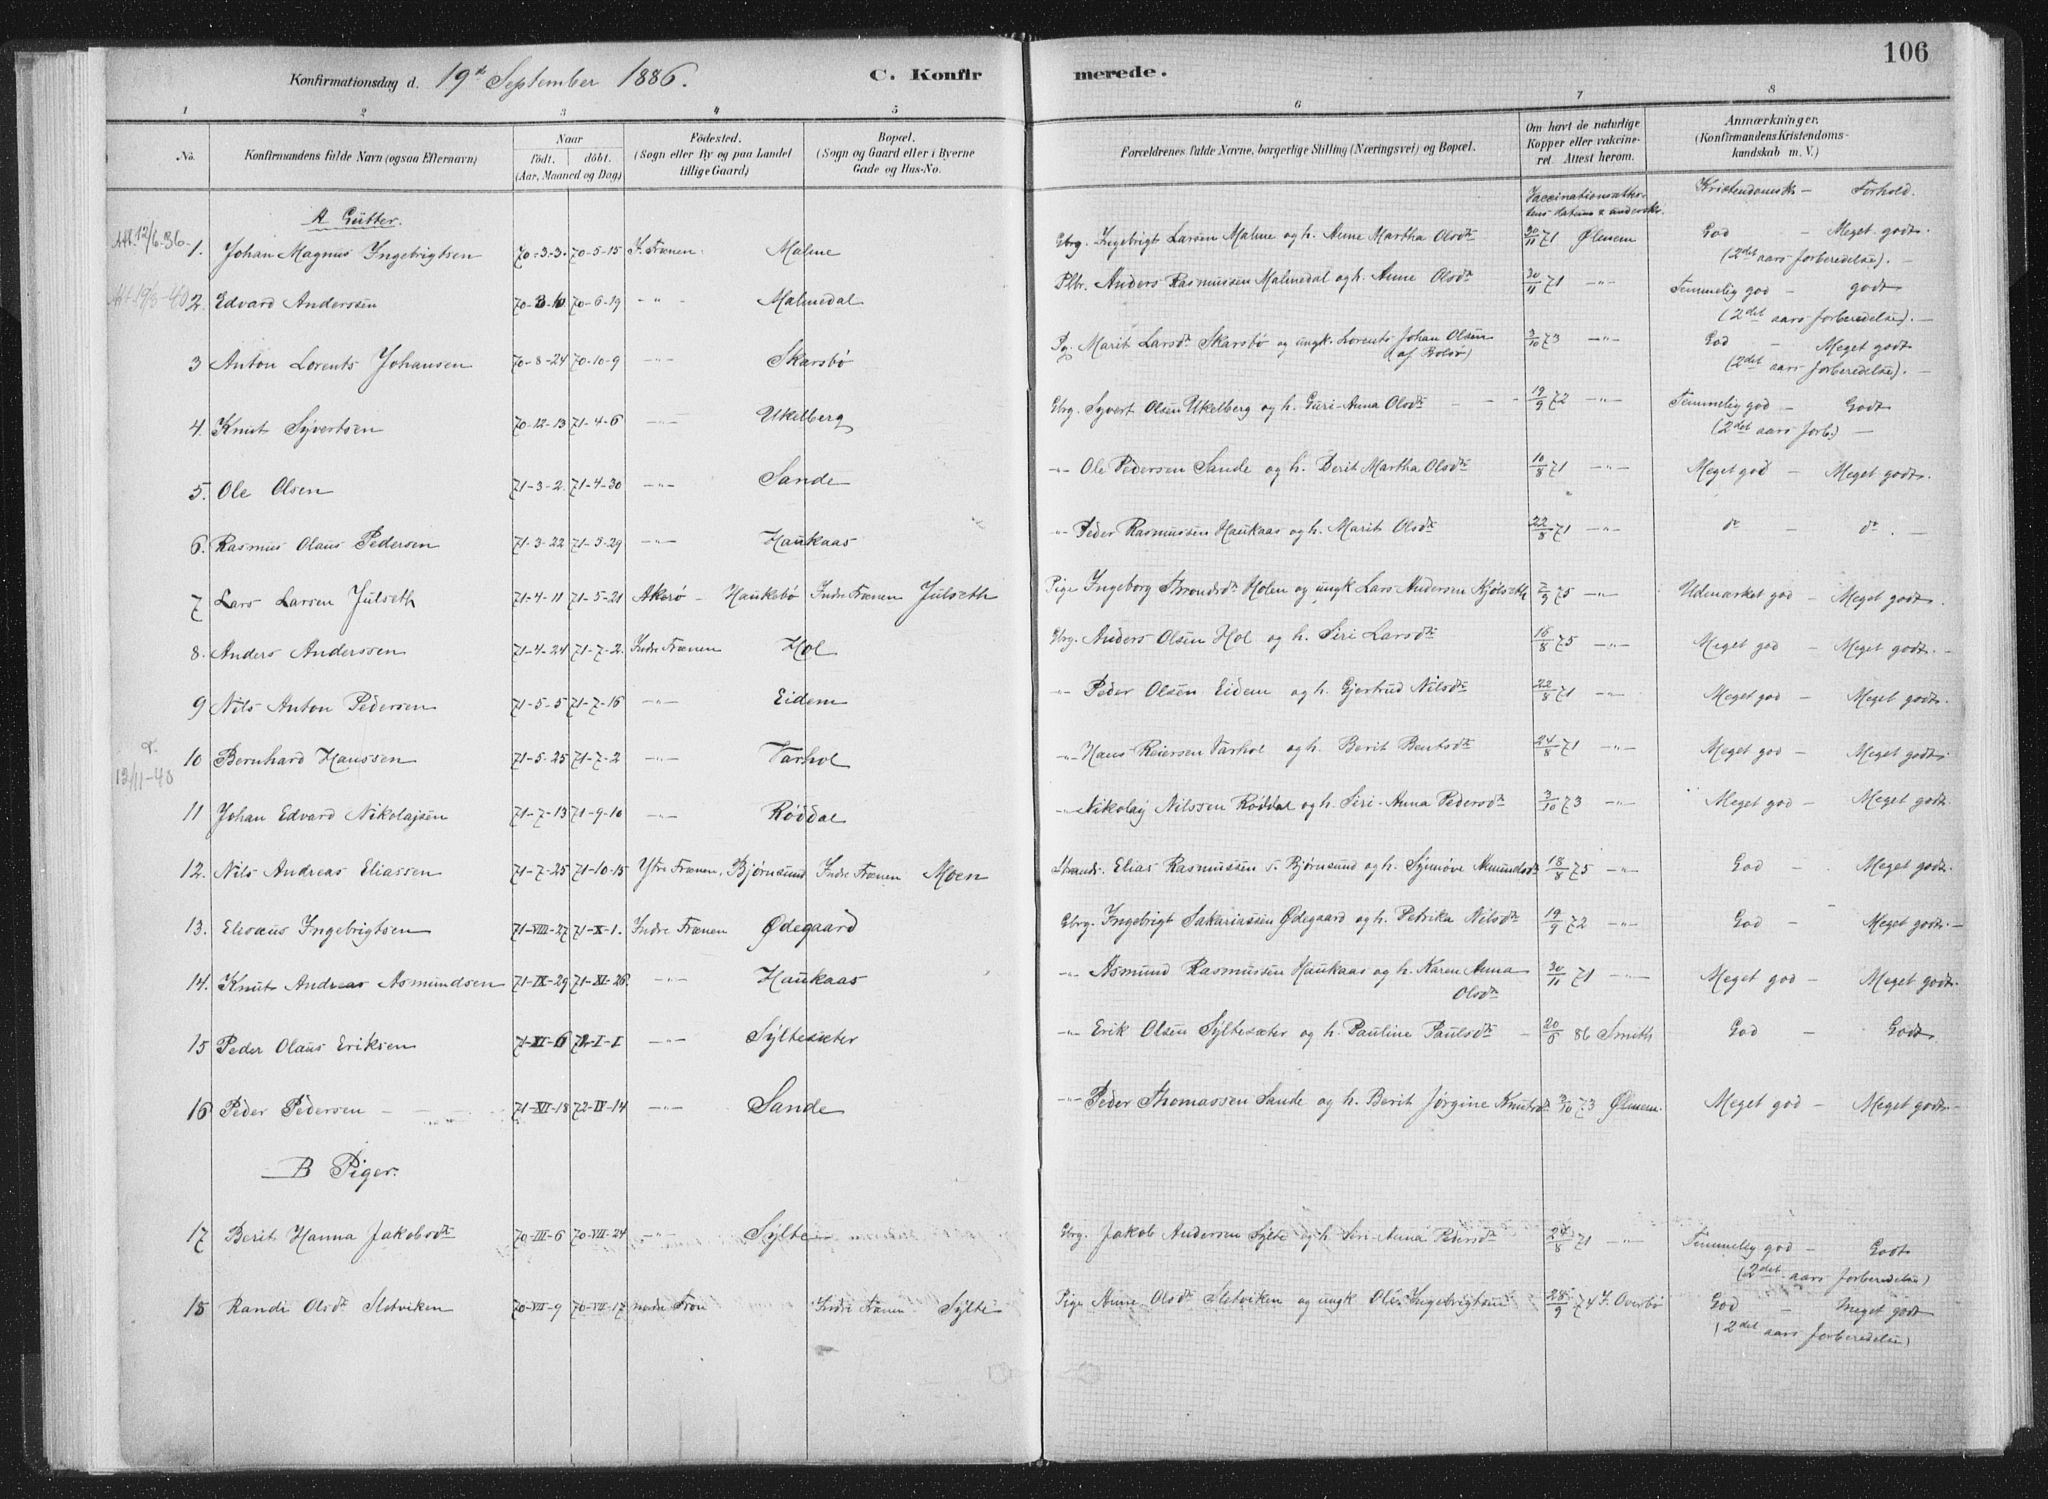 106
Konfirmationsdag d. 19de September 1886. C. Konfirmerede.
1 2 3 4 5 6 7 8
No. Konfirmandens fulde Navn (ogsaa Efternavn) Naar födt. döbt. (Aar, Maaned og Dag) Födested. (Sogn eller By og paa Landet tillige Gaard) Bopæl. (Sogn og Gaard eller i Byerne Gade og Hus-No. Forældrenes fulde Navne, borgerlige Stilling (Næringsvei) og Bopæl. Om havt de naturlige Kopper eller vakcineret. Attest herom. Anmærkninger. (Konfirmandens Kristendomskundskab m. V.)
Vaccinationsattestens datum & underskr. Kristendomsk - Forhold.
A Gutter.
Att. 12/6-36. 1. Johan Magnus Ingebrigtsen 70-3-3. 70-5-15 I. Frænen Malme Gbrg. Ingebrigt Larsen Malme og h. Anne Martha Olsdtr 30/11 71 Ølmem God - Meget godt (2det aars forberedelse). -
Att. 19/3-40 2. Edvard Anderssen 70-3-6 70-6-19 -"- Malmedal Plbr. Anders Rasmussen Malmedal og h. Anne Olsdtr 30/11 71 -"- Temmelig god - godt (2det aars forberedelse). -
3 Anton Lorents Johansen 70-8-24 70-10-9 -"- Skarsbø Pg. Marit Larsdtr Skarsbø og ungk. Lorents Johan Olsen (af Bolsø) 3/10 73 -"- God - Meget godt (2det aars forberedelse). -
4. Knut Syvertsen 70-12-13 71-4-6 -"- Ukelberg Gbrg. Syvert Olsen Ukelberg og h. Guri-Anna Olsdtr 19/9 72 -"- Temmelig god - Godt (2det aars forb.) -
5. Ole Olsen 71-3-2. 71-4-30 -"- Sande -"- Ole Pedersen Sande og h. Berit Martha Olsdtr 10/8 71 -"- Meget god - Meget godt.
6. Rasmus Olaus Pedersen 71-3-22 71-5-29 -"- Haukaas -"- Peder Rasmussen Haukaas og h. Marit Olsdtr 22/8 71 -"- do - do. -
7 Lars Larsen Julseth 71-4-11 71-5-21 Akerø - Haukebø Indre Frænen Julseth Pige Ingeborg Throndsdtr Holen og ungk Lars Andersen Kjølseth 2/9 75 -"- Udmærket god - Meget godt.
8. Anders Anderssen 71-4-24 71-7-2. Indre Frænen Hol Gbrg. Anders Olsen Hol og h. Siri Larsdtr 16/8 75 -"- Meget god - Meget godt. -
9 Nils Anton Pedersen 71-5-5 71-7-16 -"- Eidem -"- Peder Olsen Eidem og h. Gjertrud Nilsdtr 22/8 71 -"- Meget god - Meget godt.
12/11-40 10 Bernhard Hanssen 71-5-25 71-7-2 -"- Varhol -"- Hans Reiersen Varhol og h. Berit Bentsdtr 24/8 71 -"- Meget god - Meget godt.
11 Johan Edvard Nikolajsen 71-7-13 71-9-10 Røddal -"- Nikolaj Nilssen Røddal og h. Siri-Anna Pedersdtr 3/10 73 -"- Meget god - Meget godt.
12. Nils Andreas Eliassen 71-7-25 71-10-15 Ytre Frænen, Bjørnsund Indre Frænen Moen Strands. Elias Rasmussen s. Bjørnsund og h. Synnøve Amundsdtr 18/8 75 -"- God - Meget godt.
13. Elisæus Ingebrigtsen 71-VIII-27 71-X-1. Indre Frænen Ødegaard Gbrg. Ingebrigt Sakariassen Ødegaard og h. Petrika Nilsdtr 19/9 72 -"- God - Meget godt. -
14. Knut Andreas Asmundsen 71-IX-29 71-XI-26. -"- Haukaas -"- Asmund Rasmussen Haukaas og h. Karen Anna Olsdtr 30/11 71 -"- Meget god - Meget godt.
15 Peder Olaus Eriksen 71-XI-6 72-I-1 -"- Syltesæter -"- Erik Olsen Syltesæter og h. Pauline Paulsdtr - 20/5 86 Smith God - Godt.
16 Peder Pedersen - - 71-XI-18 72-IV-14 -"- Sande -"- Peder Thomassen Sande og h. Berit Jørgine Knutsdtr 3/10 73 Ølmem. Meget god - Meget godt. -
B Piger.
17 Berit Hanna Jakobsdtr 70-III-6 70-VII-24 -"- Sylte Gbrg. Jakob Andersen Sylte og h. Siri-Anna Pedersdtr 24/8 71 -"- Temmelig god - Godt (2det aars forberedelse)
18 Randi Olsdtr Sletviken 70-VII-9 70-VII-17 nordre Fron Indre Frænen Sylte Pige Anne Olsdtr Sletviken og ungk Ole Ingebrigtsen 28/9 74 J. Overbø God - Meget godt (2det aars forberedelse)